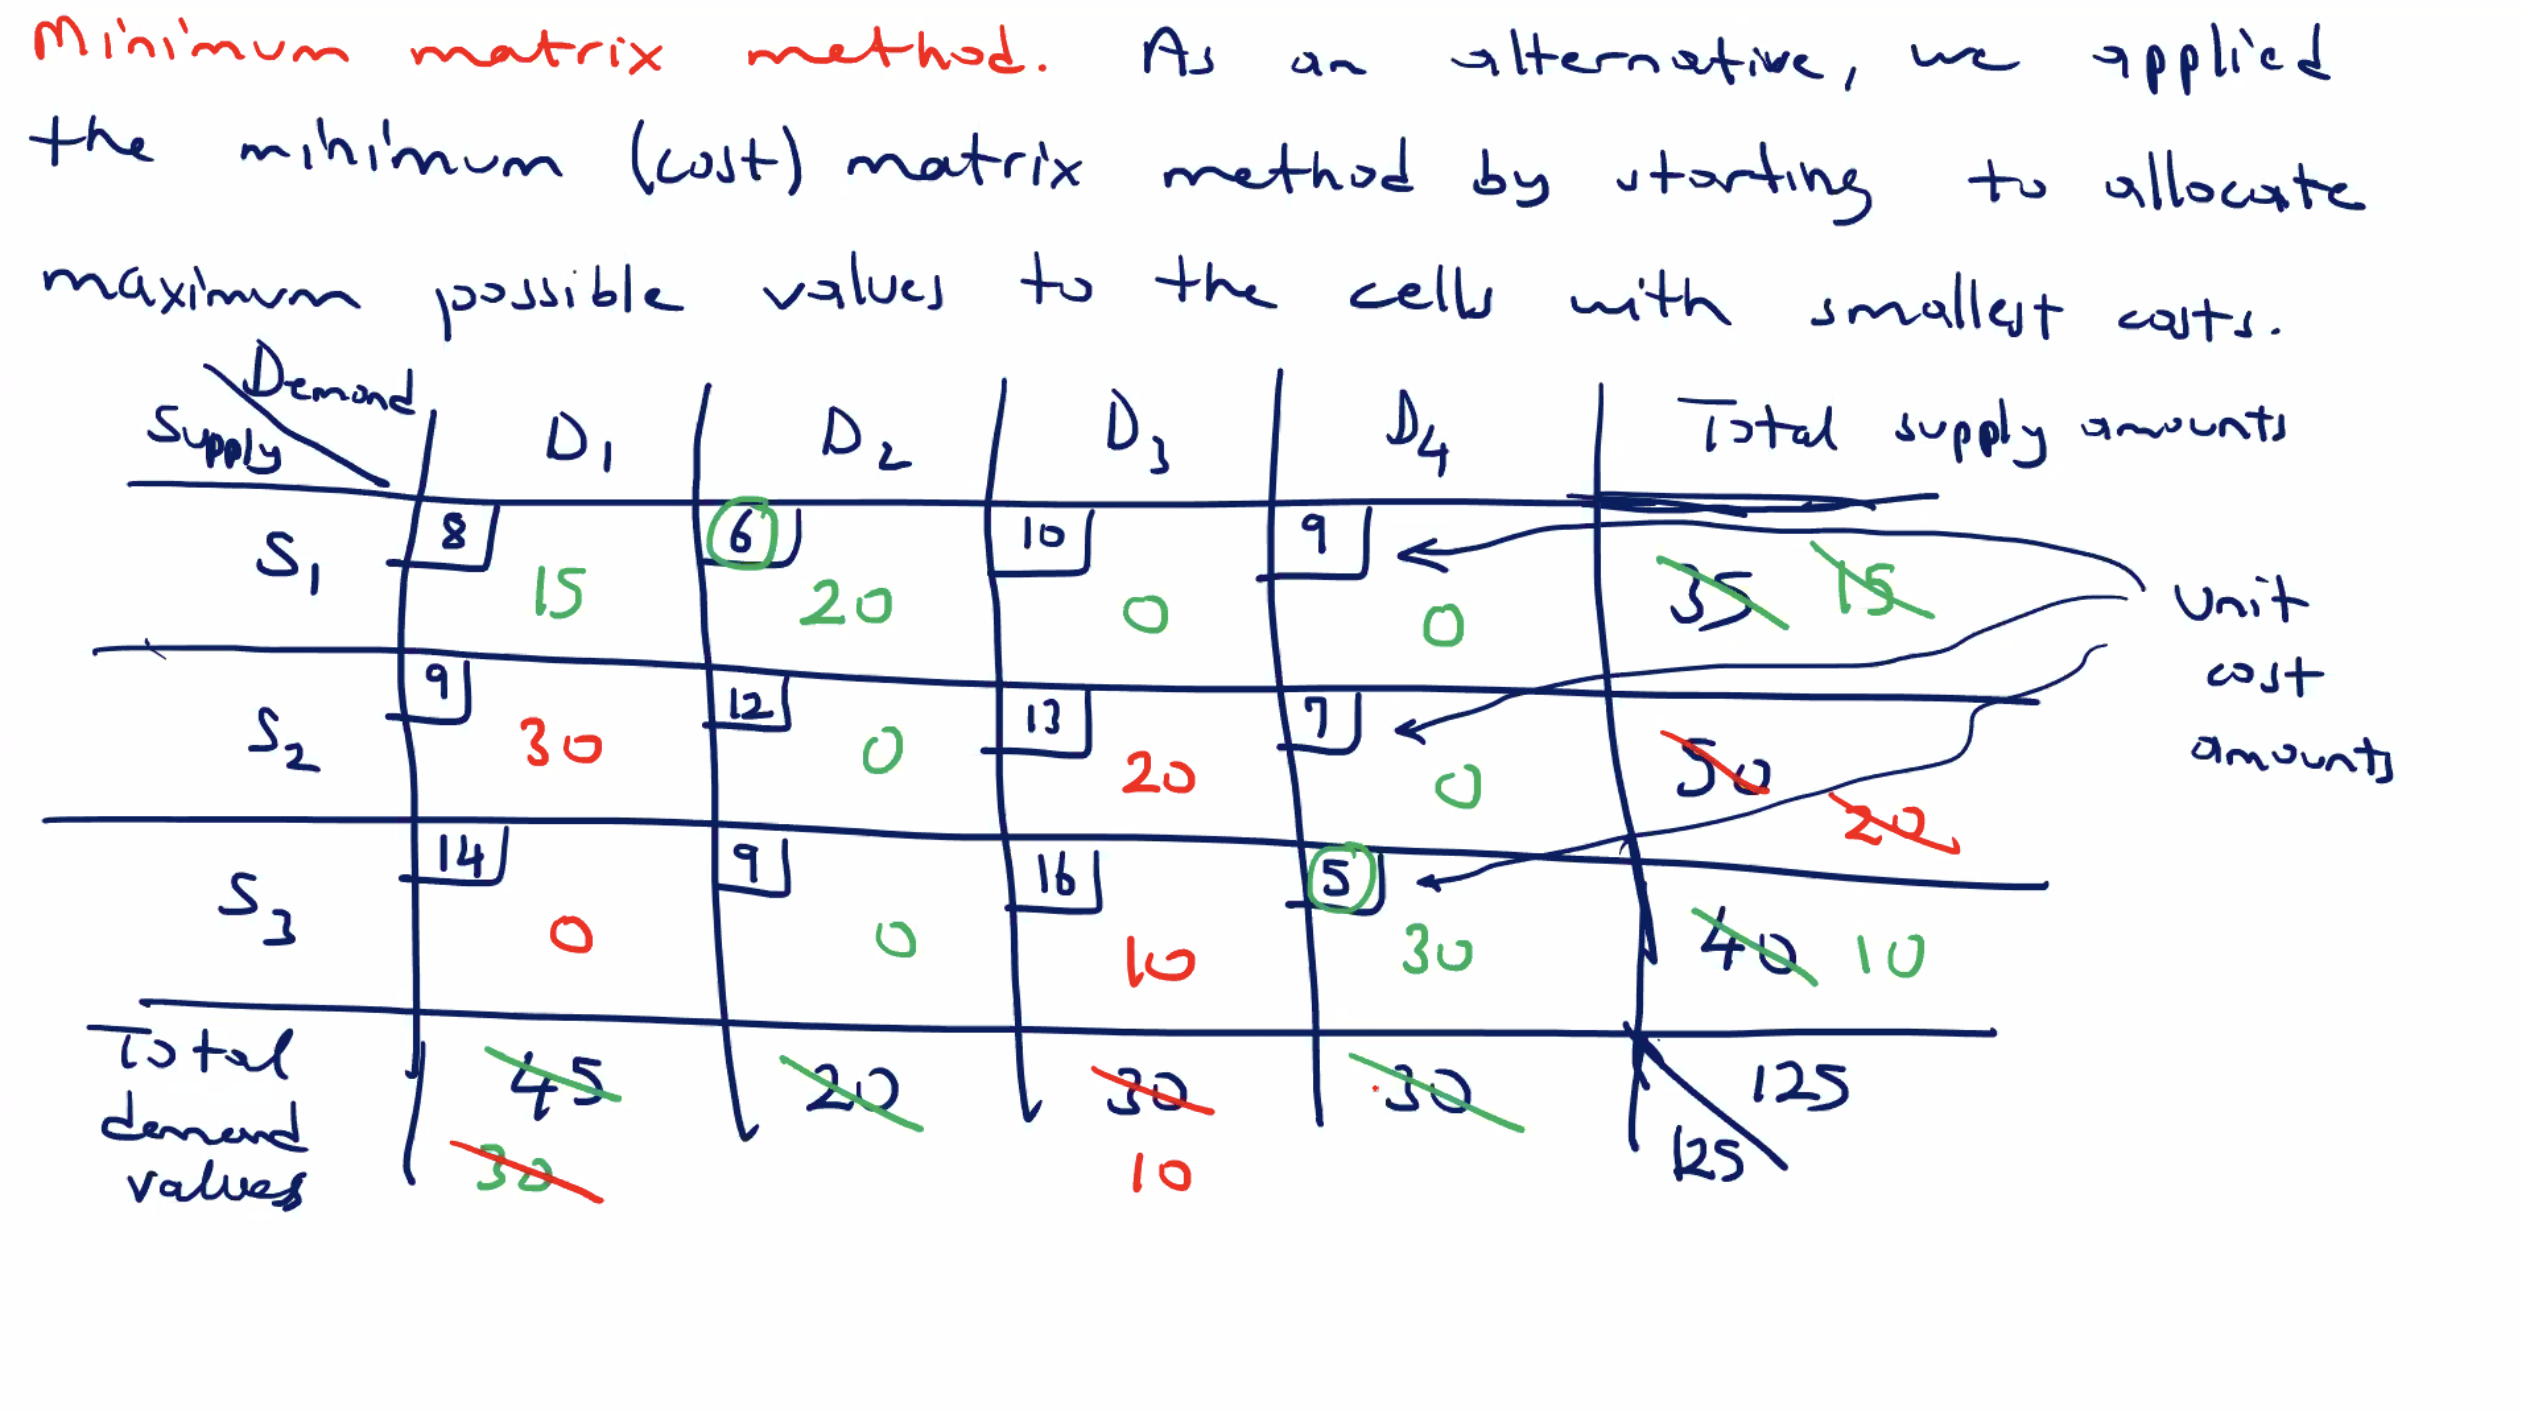 Minimum matrix method. As an alternative, we applied
the minimum (cost) matrix method by starting to allocate
maximum possible values to the cells with smallest costs.
Demand
Supply
D1 D2 D3 D4 Total supply amounts
S1 8 15 6 20 10 0 9 0 35 15
Unit cost amounts
S2 9 30 12 0 13 20 7 0 50 20
S3 14 0 9 0 16 10 5 30 40 10
Total demand values 45 20 30 30 125
30 10 125